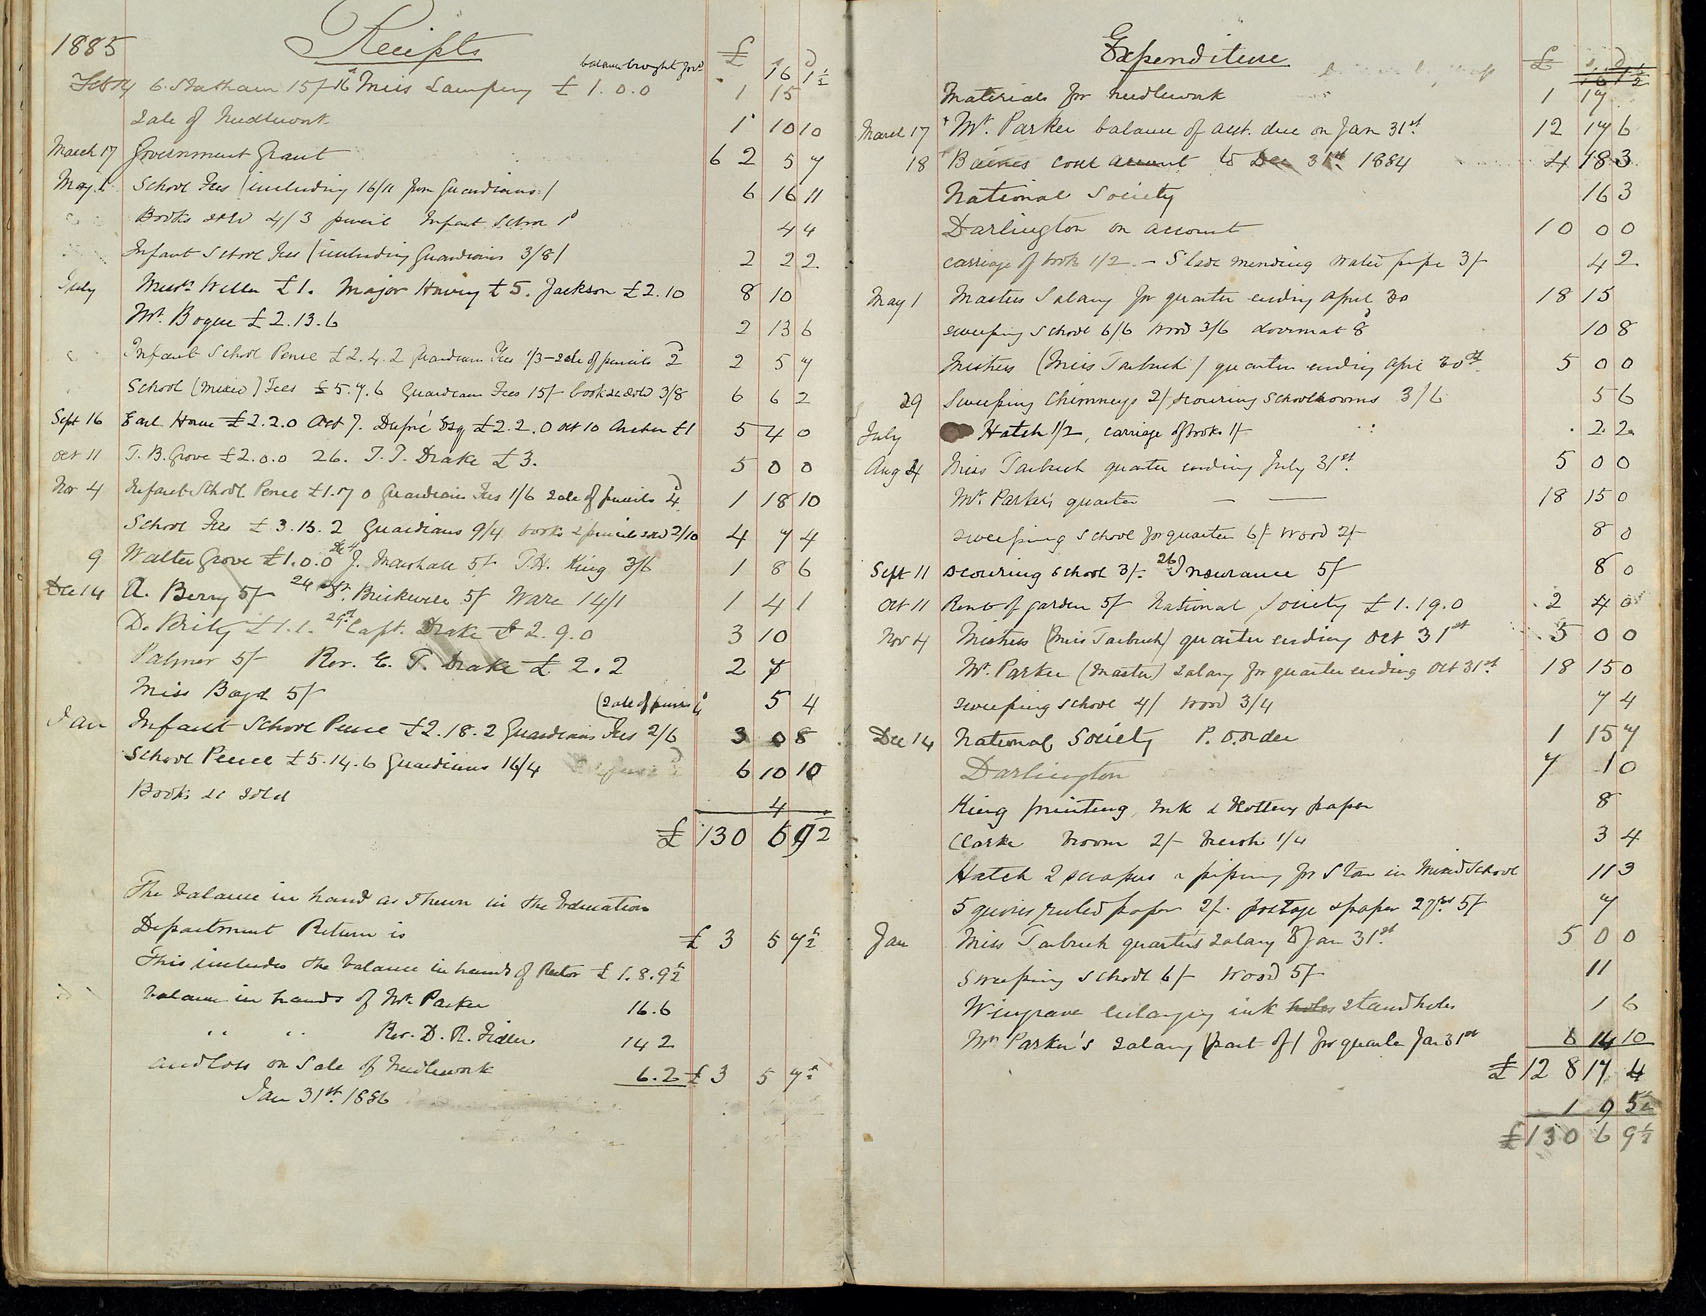 1885 Receipts £ s d
balance brought forwd 16 1½
Feb 14 G. Statham 15/- 16 Miss Lamprey £1.0.0 1 15
Sale of Needlework 1 10 10
March 17 Government Grant 62 5 7
May 1 School Fees (including 16/11 from Guardians) 6 16 11
Books sold 4/3 pencil Infant School 1d 4 4
Infant School Fees (including Guardians 3/8) 2 2 2
July Messrs Weller £1. Major Haviry £5. Jackson £2.10 8 10
Mr. Bogue £2.13.6 2 13 6
Infant School Pence £2.4.2 Guardian Fees 1/3 - sale of pencils 2d 2 5 7
School (mixed) Fees £5.7.6 Guardian Fees 15/- books &c sold 3/8 6 6 2
Sept 16 Earl Howe £2.2.0 Oct 7. Dupré Esq £2.2.0 Oct 10 Archer £1 5 4 0
Oct 11 T. B. Grove £2.0.0 26. T. T. Drake £3. 5 0 0
Nov 4 Infant School Pence £1.17.0 Guardians Fees 1/6 sale of pencils 4d 1 18 10
School Fees £3.15.2 Guardians 9/4 books & pencils sold 2/10 4 7 4
9 Walter Grove £1.0.0 J. Marshall 5/- T.H. King 3/6 1 8 6
Dec 14 A. Berry 5/- 24 Brickwell 5/ Ware 14/1 1 4 1
£1.1. 29th Capt. Drake £2.9.0 3 10
Palmer 5/- Rev. E. T. Drake £2.2 2 7
Miss Boyd 5/- (sale of pencils 4d 5 4
Jan Infant School Pence £2.18.2 Guardians Fees 2/6 3 0 8
School Pence £5.14.6 Guardians 16/4 6 10 10
Books &c sold 4
£130 6 9½
The balance in hand as shewn in the Education
Department Return is £3 5 7½
This includes the balance in hands of Rector £1.8.9½
balance in hands of Mr. Parker 16.6
" " Rev. D. R. Fidler 14 2
and loss on Sale of Needlework 6.2 £3 5 7½
Jan 31st 1886
Expenditure £ s d
16 1½
Materials for needlework 1 17
March 17 Mr. Parker balance of acct. due on Jan 31st 12 17 6
18 Baines coal account to Dec 31st 1884 4 18 3
National Society 16 3
Darlington on account 10 0 0
carriage of books 1/2 - Slade mending water pipe 3/- 4 2
May 1 Masters Salary for quarter ending April 30 18 15
sweeping school 6/6 wood 3/6 doormat 8d 10 8
Mistress (Miss Tarbuck) quarter ending April 30th 5 0 0
29 Sweeping Chimneys 2/ scouring Schoolrooms 3/6 5 6
July Hatch 1/2, carriage of books 1/- 2 2
Aug 4 Miss Tarbuck quarter ending July 31st 5 0 0
Mr. Parker's quarter 18 15 0
sweeping school for quarter 6/- wood 2/- 8 0
Sept 11 scouring school 3/- 26 Insurance 5/- 8 0
Oct 11 Rent of garden 5/- National Society £1.19.0 2 4 0
Nov 4 Mistress (Miss Tarbuck) quarter ending Oct 31st 5 0 0
Mr. Parker (Master) Salary for quarter ending Oct 31st 18 15 0
sweeping school 4/ wood 3/4 7 4
Dec 14 National Society P.O. order 1 15 7
Darlington 7 1 0
King printing, ink & blotting paper 8
Clarke broom 2/- brush 1/4 3 4
Hatch 2 scrapers & piping for Stove in Mixed School 11 3
5 quires ruled paper 2/. postage & paper 27th 5/- 7
Jan Miss Tarbuck quarter's salary to Jan 31st 5 0 0
Sweeping school 6/- wood 5/- 11
Wingrave enlarging ink holes stand holes 1 6
Mr Parker's salary (part of) for quarter Jan 31st 8 14 10
£128 17 4
1 9 5½
£130 6 9½